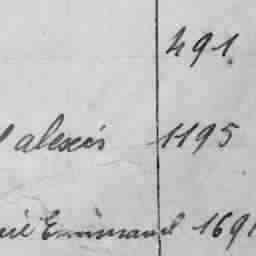 491.
alexis 1195
Emmanuel 169